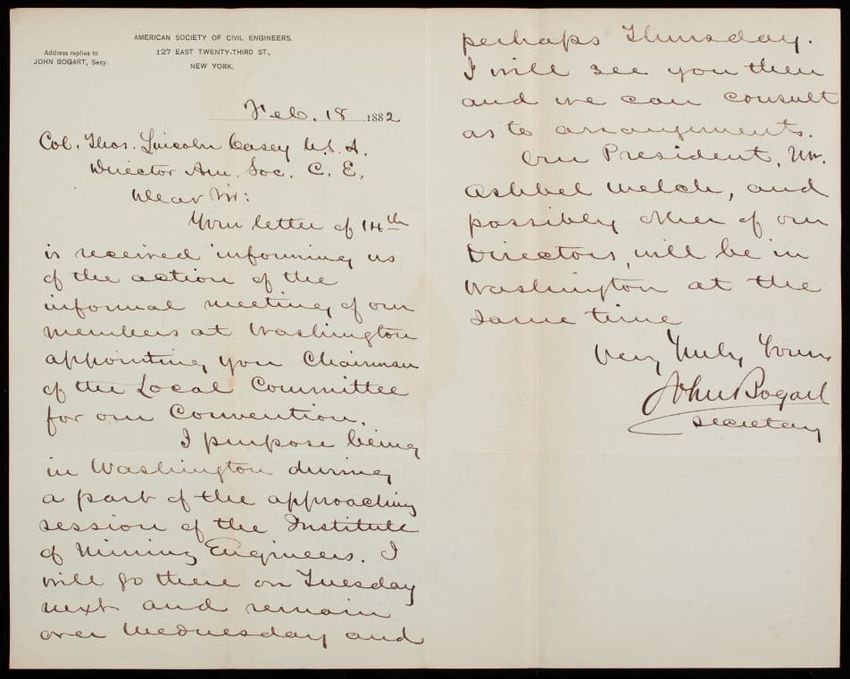 AMERICAN SOCIETY OF CIVIL ENGINEERS.
127 EAST TWENTY-THIRD ST.,
NEW YORK.
Address replies to
JOHN BOGART, Secy.
Feb. 18 1882
Col. Thos. Lincoln Casey U.S.A.
Director Am. Soc. C. E.
Dear Sir:
Your letter of 14th
is received informing us
of the action of the
informal meeting of our
members at Washington
appointing you Chairman
of the Local Committee
for our Convention.
I purpose being
in Washington during
a part of the approaching
session of the Institute
of Mining Engineers. I
will go there on Tuesday
next and remain
over Wednesday and
perhaps Thursday.
I will see you then
and we can consult
as to arrangements.
Our President, Mr.
Ashbel Welch, and
possibly other of our
Directors, will be in
Washington at the
same time
Very Truly Yours
John Bogart
Secretary